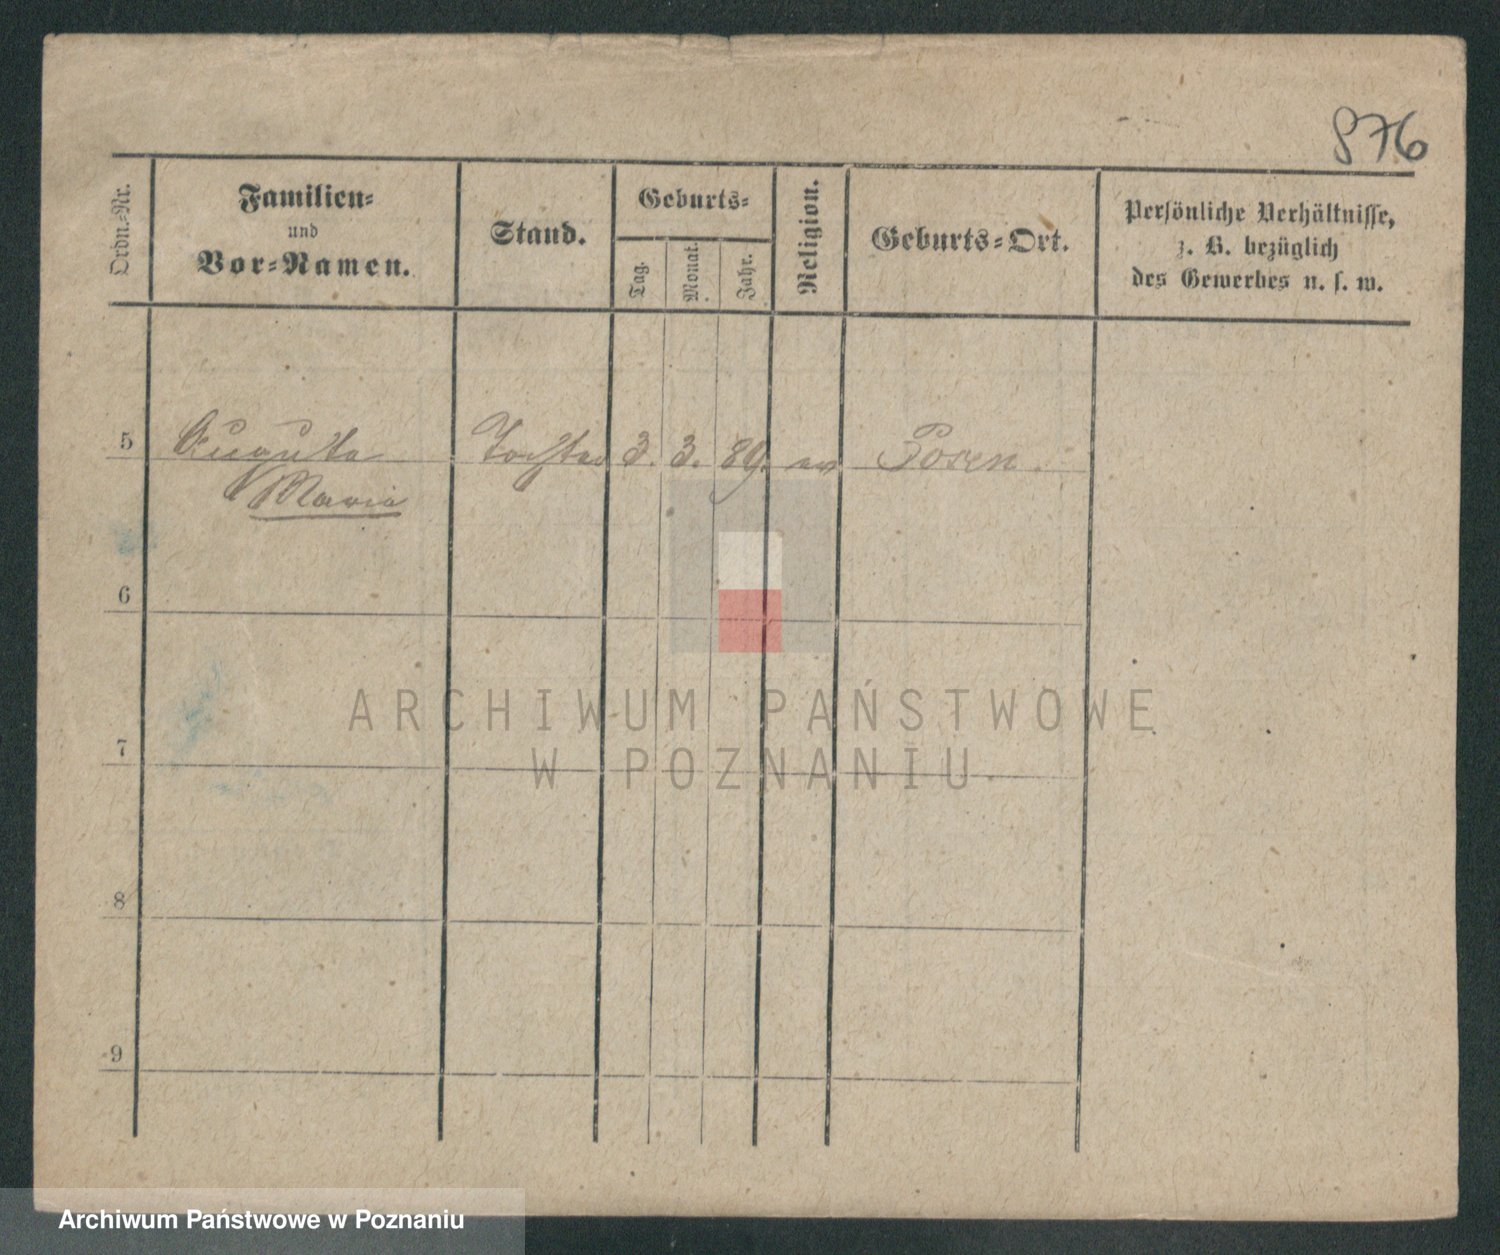 876
Ordn.-Nr.
Familien-
und
Vor-Namen.
Stand.
Geburts-
Tag.
Monat.
Jahr.
Religion.
Geburts-Ort.
Persönliche Verhältnisse,
z. B. bezüglich
des Gewerbes u. s. w.
5 Auguste Tochter 3. 3. 89. ev Posen.
Maria
6
7
8
9
ARCHIWUM PAŃSTWOWE
W POZNANIU
Archiwum Państwowe w Poznaniu